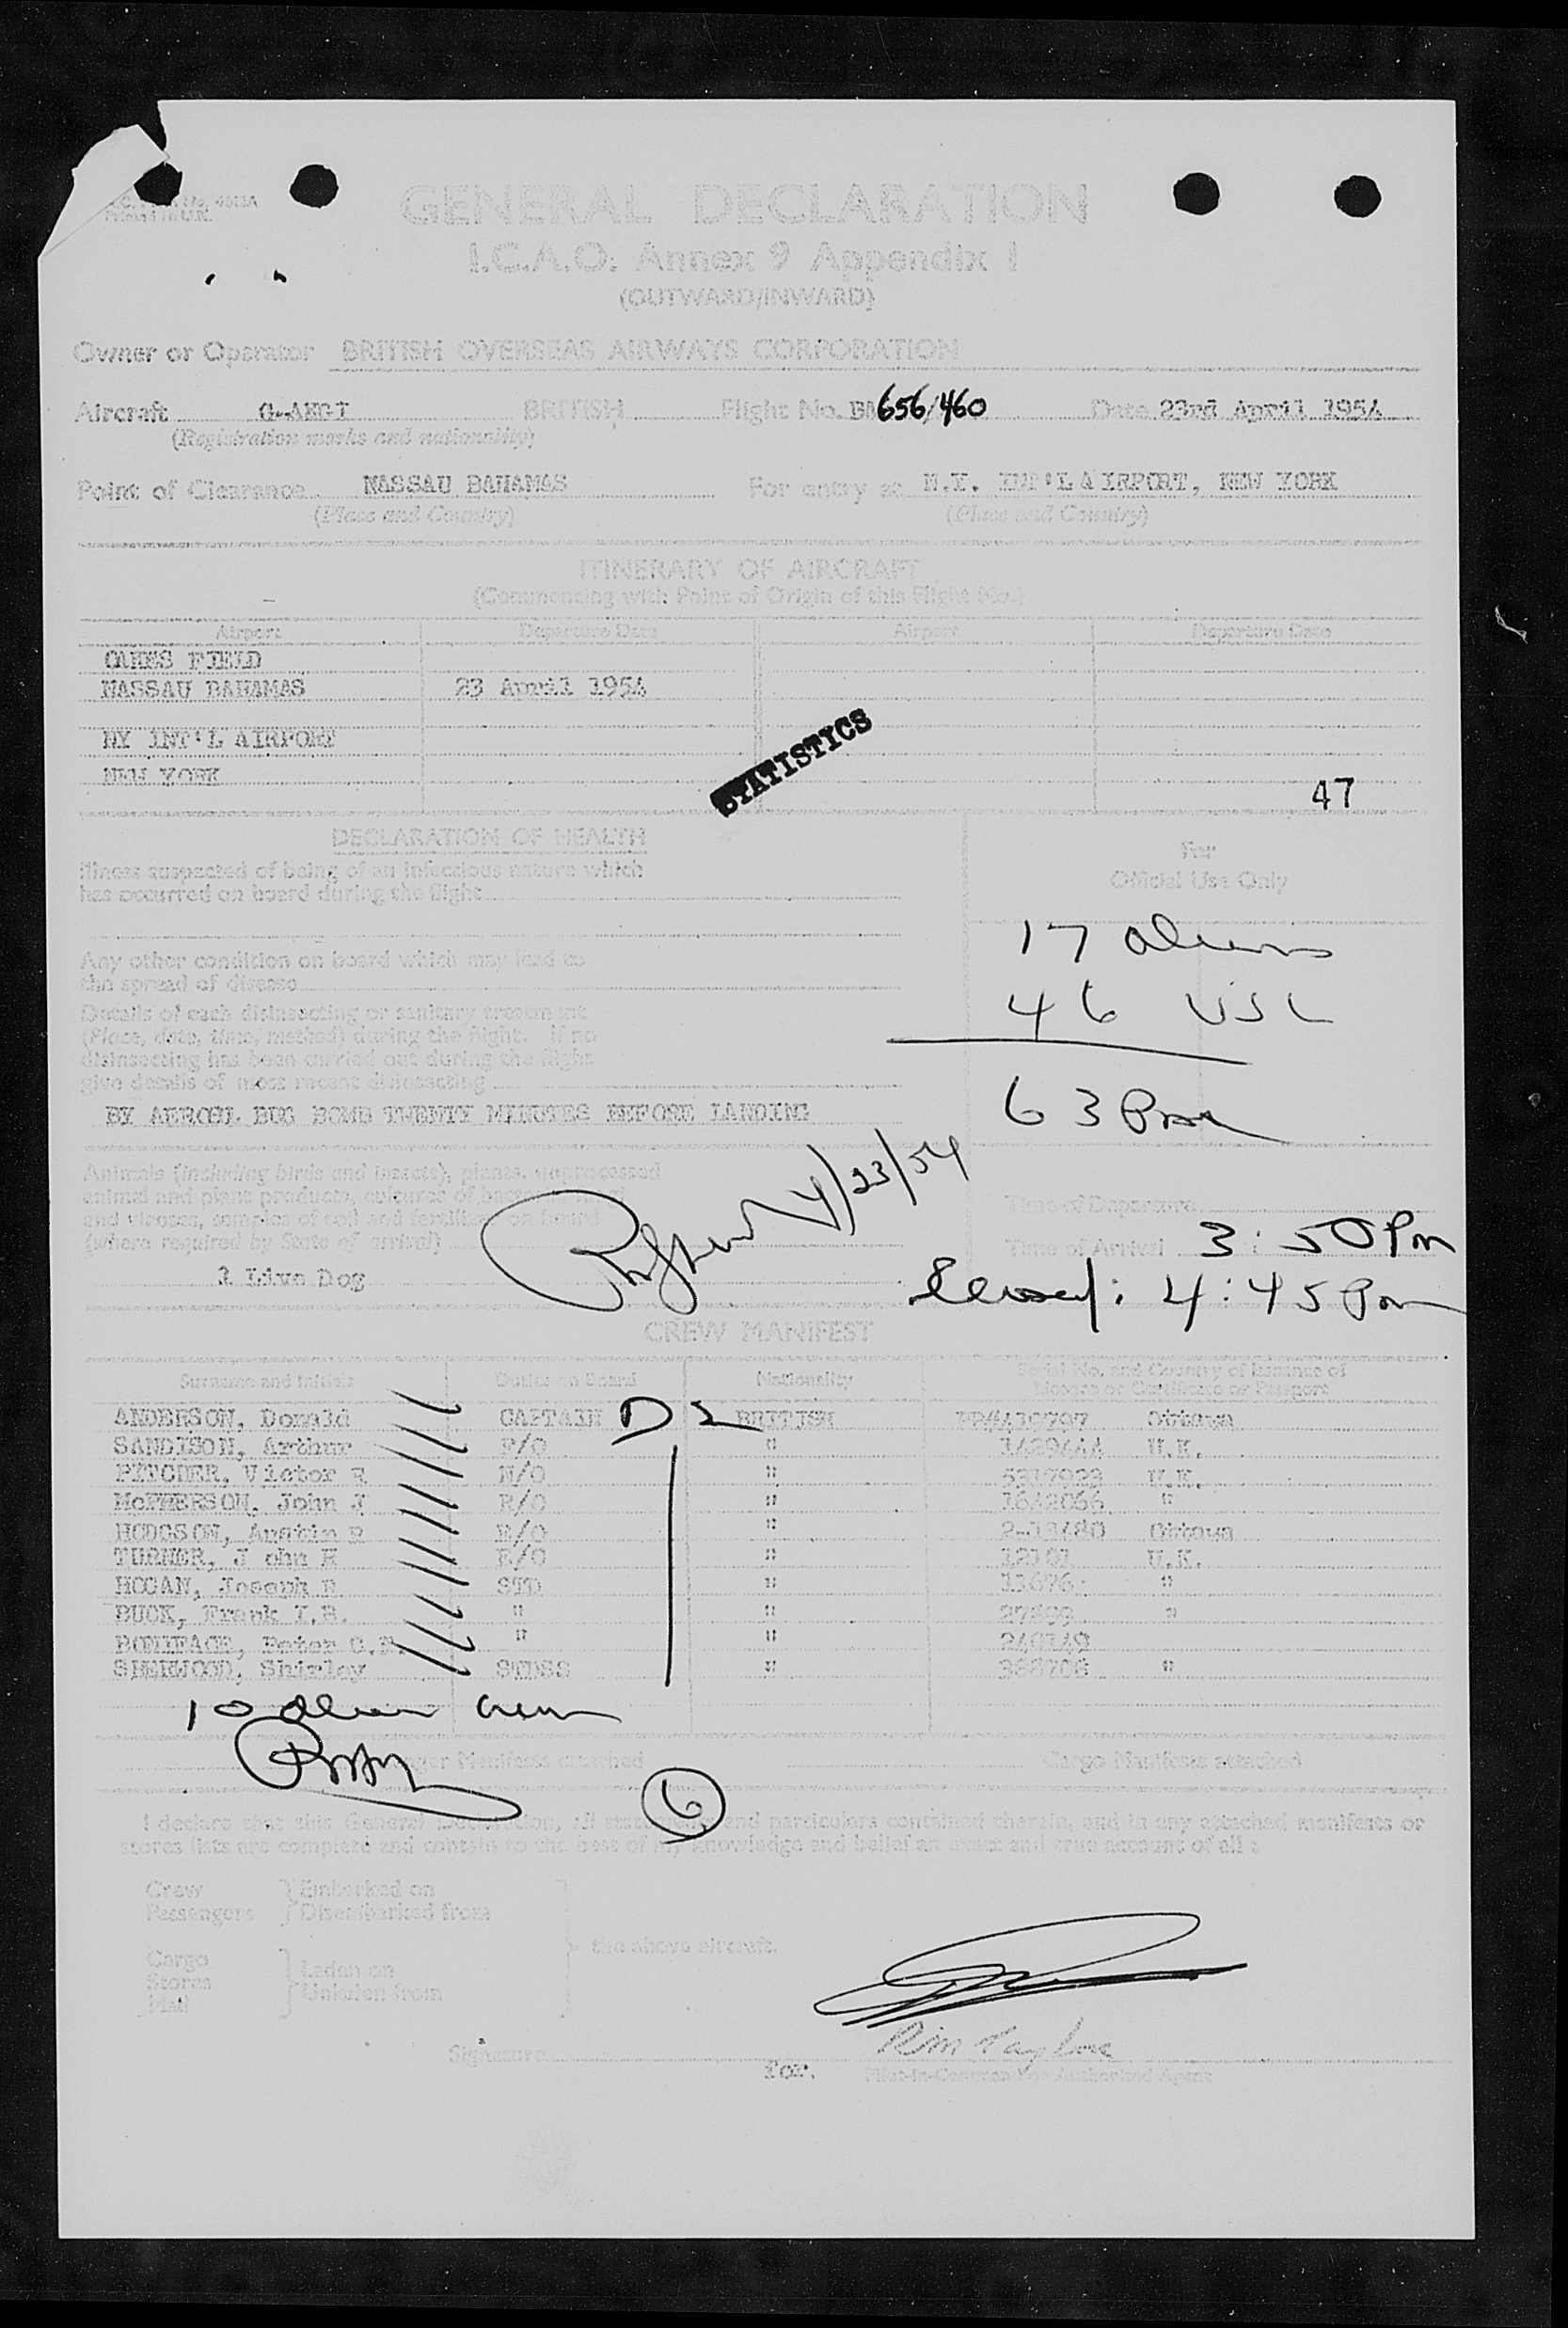 GENERAL DECLARATION
I.C.A.O. Annex 9 Appendix I
(OUTWARD/INWARD)
Owner or Operator BRITISH OVERSEAS AIRWAYS CORPORATION
Aircraft BRITISH Flight No. BA 656/460 Date 23rd April 1954
(Registration marks and nationality)
Point of Clearance NASSAU BAHAMAS For entry at N.Y. INT'L AIRPORT, NEW YORK
(Place and Country) (Place and Country)
ITINERARY OF AIRCRAFT
(Commencing with Point of Origin of this Flight No.)
Airport Departure Date Airport Departure Date
OAKES FIELD
NASSAU BAHAMAS 23 April 1954
NY INT'L AIRPORT
NEW YORK
STATISTICS
47
DECLARATION OF HEALTH
Illness suspected of being of an infectious nature which
has occurred on board during the flight
For
Official Use Only
17 aliens
46 USC
63
Any other condition on board which may lead to
the spread of disease
Details of each disinsecting or sanitary treatment
(Place, date, time, method) during the flight. If no
disinsecting has been carried out during the flight
give details of most recent disinsecting
BY AEROSL BUG BOMB TWENTY MINUTES BEFORE LANDING
Animals (including birds and insects), plants, unprocessed
animal and plant products, cultures of bacteria
and viruses, samples of soil and fertilizer on board
(where required by State of arrival)
1 Live Dog
4/23/54
Time of Departure
Time of Arrival 3:50 Pm
4:45 Pm
CREW MANIFEST
Surname and Initials Duties on Board Nationality Serial No. and Country of Issuance of
License or Certificate or Passport
ANDERSON, Donald CAPTAIN D 2 BRITISH Ottawa
SANDISON, Arthur F/O " U.K.
PITCHER, Victor N/O " U.K.
McPHERSON, John J R/O " "
HODGSON, Austin " Ottawa
TURNER, John E/O " U.K.
HOGAN, Joseph STD " "
BUCK, Frank I.B. " " "
BONIFACE, Peter " "
SHERWOOD, Shirley STDSS " "
10 alien crew
Manifests attached Cargo Manifests attached
6
I declare that this General Declaration, all statements and particulars contained therein, and in any attached manifests or
stores lists are complete and contain to the best of my knowledge and belief an exact and true account of all :
Crew Embarked on
Passengers Disembarked from
the above aircraft.
Cargo
Stores Laden on
Mail Unladen from
Taylor
Signature
For. Pilot-in-Command or Authorised Agent